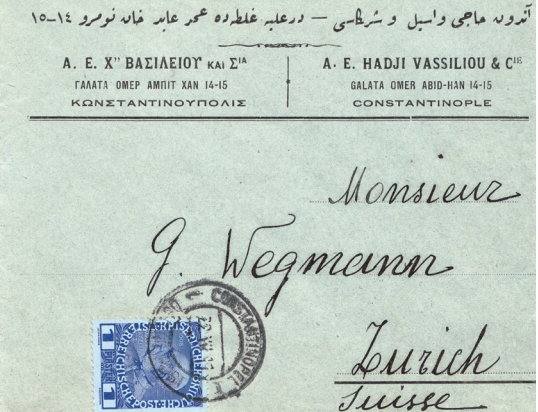 آندون حاجی واسیل و شرکاسی — درعلیه غلطه‌ده عمر عابد خان نومرو ١٤-١٥
Α. Ε. Χ" ΒΑΣΙΛΕΙΟΥ ΚΑΙ Σ^ΙΑ
ΓΑΛΑΤΑ ΟΜΕΡ ΑΜΠΙΤ ΧΑΝ 14-15
ΚΩΝΣΤΑΝΤΙΝΟΥΠΟΛΙΣ
A. E. HADJI VASSILIOU & C^IE
GALATA OMER ABID-HAN 14-15
CONSTANTINOPLE
Monsieur
G. Wegmann
Zurich
Suisse
CONSTANTINOPEL
1 PIASTER 1